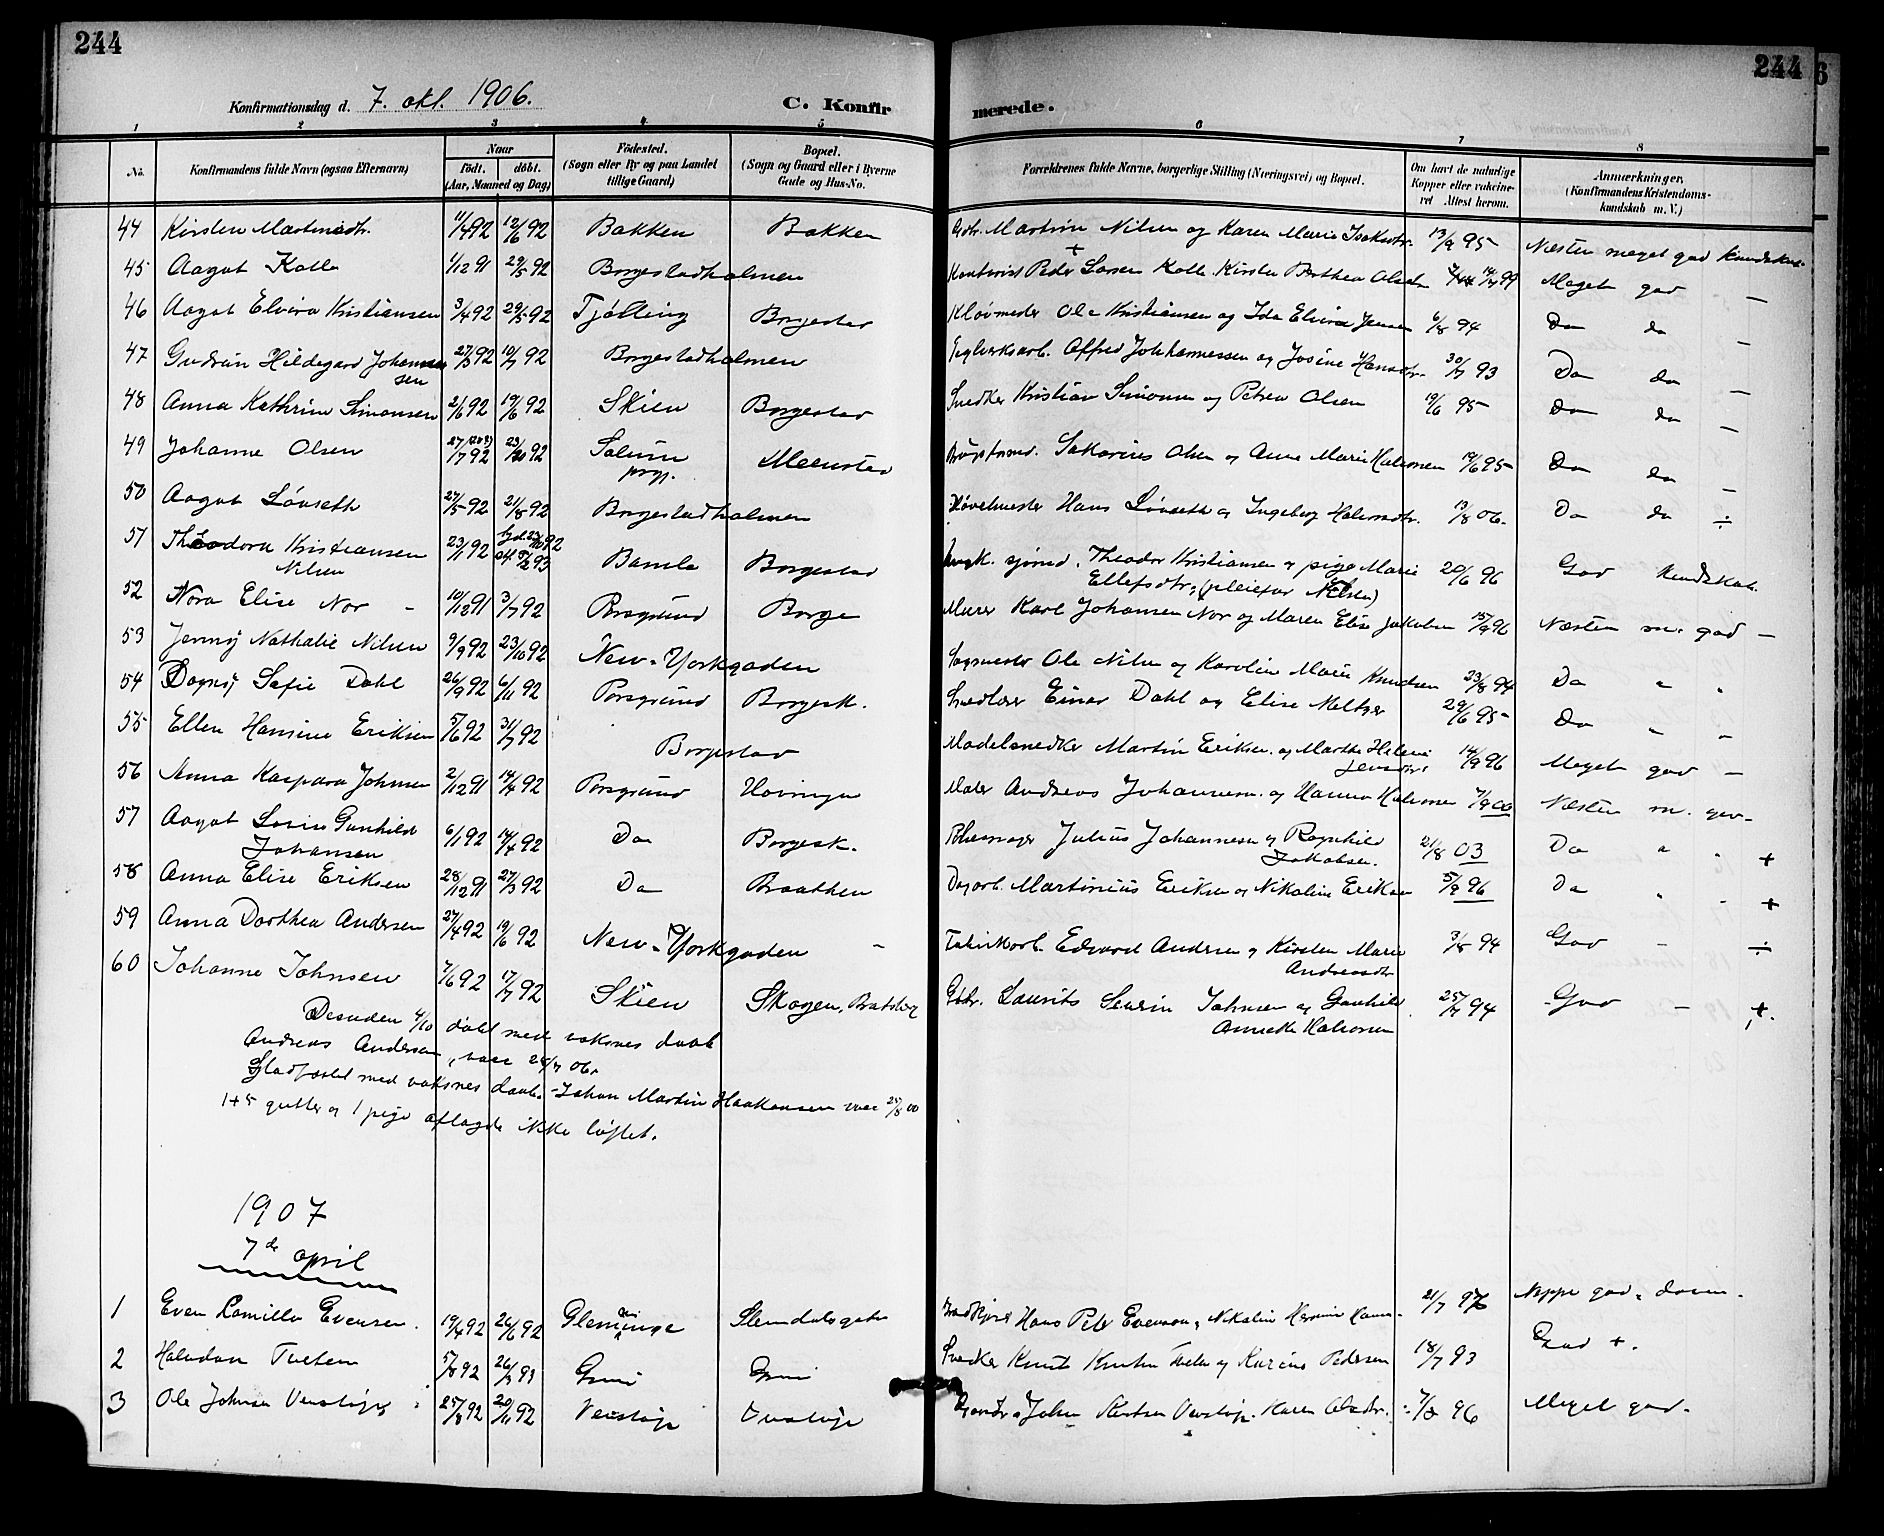 244
244
Konfirmationsdag d. 7. okt. 1906.
C. Konfir
merede.
1 2 3 4 5 6 7 8
No. Konfirmandens fulde Navn (ogsaa Efternavn) Naar födt. döbt. (Aar, Maaned og Dag) Födested. (Sogn eller By og paa Landet tillige Gaard) Bopæl. (Sogn og Gaard eller i Byerne Gade og Hus-No. Forældrenes fulde Navne, borgerlige Stilling (Næringsvei) og Bopæl. Om havt de naturlige Kopper eller vakcineret Attest herom. Anmærkninger, (Konfirmandens Kristendomskundskab m. V.)
44 Kirsten Martinsdtr. 11/4 92 12/6 92 Bakken Bakken Martin Nilsen og Karen Marie Isaksdtr. 13/9 95 Næsten meget god kundskab.
45 Aagot Kolle 1/12 91 29/5 92 Borgestadholmen Kontorist Peder Larsen Kolle. Kirsten Berthea Olsdtr 14/7 99 Meget god —
46 Aagot Elvira Kristiansen 3/4 92 29/5 92 Tjölling Borgestad Kløvmester Ole Kristiansen og Ida Elvira Jensen 6/8 94 Do do —
47 Gudrun Hildegard Johannessen 27/3 92 10/7 92 Borgestadholmen Teglverksarb. Alfred Johannessen og Josine Hansdtr. 30/7 93 Do do —
48 Anna Kathrine Simonsen 2/6 92 19/6 92 Skien Borgestad Snedker Kristian Simonsen og Petrea Olsen 19/6 95 Do do —
49 Johanne Olsen 27/7 92 23/10 92 Solum prgj. Menstad Sakarias Olsen og Anne Marie Halvorsen 14/6 95 Do do —
50 Aagot Løvseth 27/5 92 21/8 92 Borgestadholmen Høvelmester Hans Løvseth og Ingeborg Halvorsdtr. 13/8 06. Do do ÷
51 Theodora Kristiansen Nilsen 23/1 92 hjd. 23/10 92 Bamle Borgestad sjømd. Theodor Kristiansen og pige Marie Ellefsdtr. (pleiefar Nilsen) 20/6 96 God kundskab.
52 Nora Elise Nor - 10/12 91 3/7 92 Porsgrund Borge Murer Karl Johansen Nor og Maren Elise Jakobsen 15/9 96 Næsten m. god —
53 Jenny Nathalie Nilsen 9/9 92 23/10 92 New-Yorkgaden Sagmester Ole Nilsen og Karoline Marie Knudsen 23/8 94 Do " "
54 Dagny Sofie Dahl 26/9 92 6/11 92 Porsgrund Borgesk. Einar Dahl og Elise Meltzer 29/6 95 Do " —
55 Ellen Hansine Eriksen 5/6 92 31/7 92 Borgestad Modelsnedker Martin Eriksen og Marthe Helene Jensdtr. 14/9 96 Meget god —
56 Anna Kaspara Johnsen 2/12 91 14/4 92 Porsgrund Hovingen Maler Andreas Johannesen og Hanna Halvorsen 7/9 00 Næsten m. god -
57 Aagot Lovise Gunhild Johansen 6/1 92 14/4 92 Do Borgesk. Julius Johannesen og Ragnhild Jakobsen. 21/8 03 Do " " +
58 Anna Elise Eriksen 28/12 91 27/3 92 Do Braathen Dagarb. Martinius Eriksen og Nikoline Eriksen 5/9 96 Do " - +
59 Anna Dorthea Andersen 27/4 92 19/6 92 New-Yorkgaden - Fabrikarb. Edvard Andersen og Kirsten Marie Andreasdtr 3/8 94 God - ÷
60 Johanne Johnsen 7/6 92 17/7 92 Skien Skogen, Bratsberg Laurits Severin Johnsen og Gunhild Annette Halvorsen 25/7 94 God - +.
Desuden 4/10 døbt med voksnes daab
Andreas Andersen, vacc 28/7 06.
Stadfæstet med voksnes daab. Johan Martin Haakonsen vacc 24/8 00
1+5 gutter og 1 pige aflagde ikke løftet.
1907
7de april
1 Even Kamillo Evensen. 19/4 92 26/6 92 Gleminge Slemdalsgade Hans Peter Evensen og Nikoline Hermine 21/7 97 Neppe god,
2 Halvdan Tveten 5/8 92 26/3 93 Grini Grini Snedker Knut Knutsen Tveten og Karine Pedersen 18/7 93 God +.
3 Ole Johnsen Venstøp 25/8 92 20/11 92 Venstøp Venstøp John Knutsen Venstøp. Karen Olsdtr. 7/8 96 Meget god.